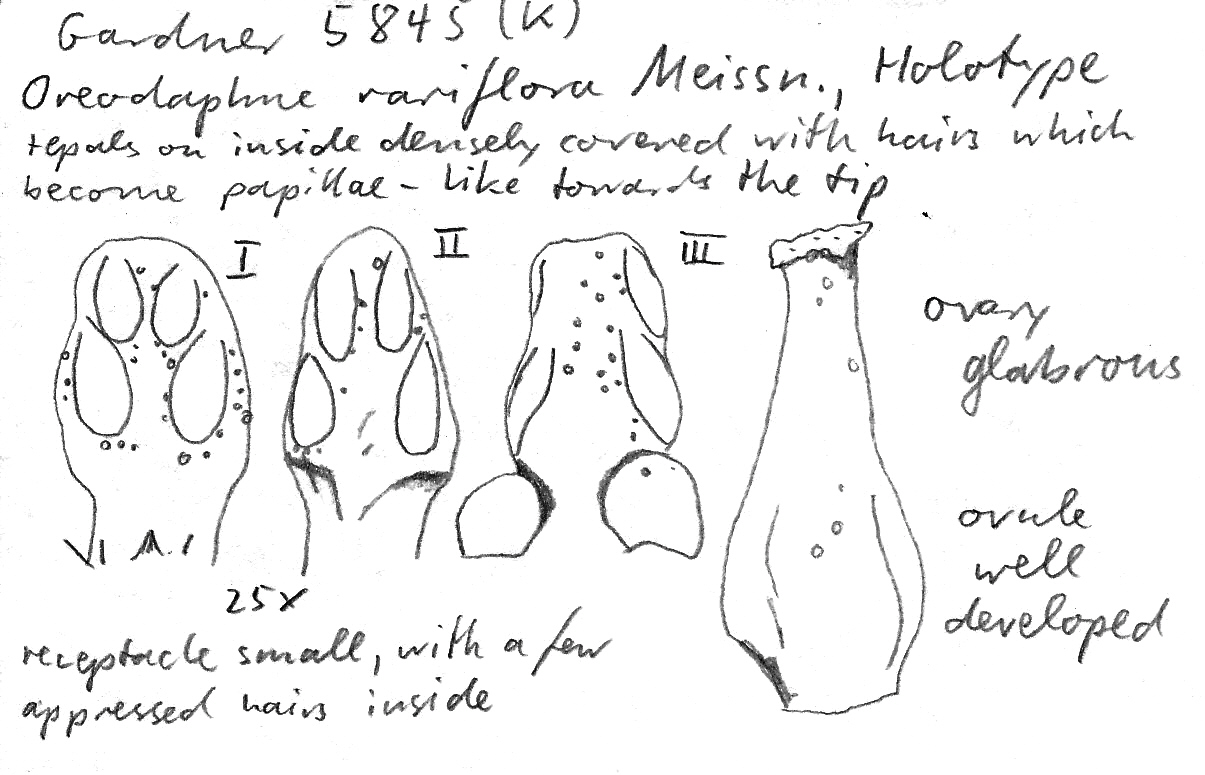 Gardner 5845 (K)
Oreodaphne rariflora Meissn., Holotype
tepals on inside densely covered with hairs which
become papillae-like towards the tip
I
II
III
ovary
glabrous
ovule
well
developed
25x
receptacle small, with a few
appressed hairs inside